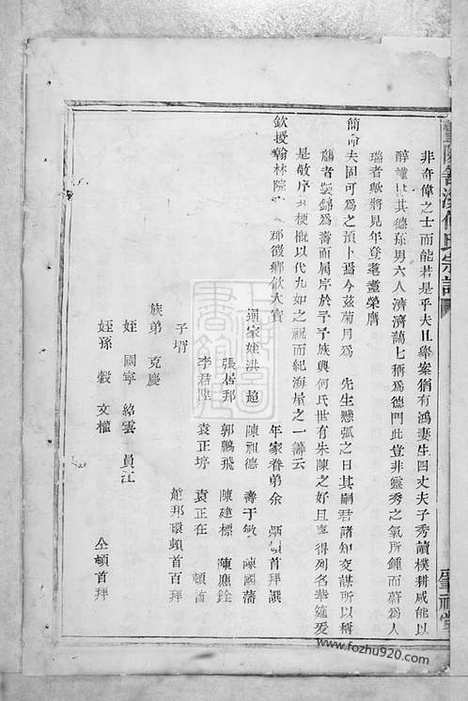 非奇偉之士而能若是乎夫且舉案猶有鴻妻生四丈夫子秀讀樸耕咸能以
醇謹世其德孫男六人濟濟蔼七稱為德門此豈非靈秀之氣所鍾而蔚為人
瑞者歟將見年登耄耋榮膺
簡命夫固可為之預卜焉今茲菊月為 先生懸弧之日其嗣君諸知交謀所以稱
觴者製錦為壽而屬序於予予族與何氏世有朱陳之好且幸得列名華筵爰
是敬序梗概以代九如之祝而紀海屋之一籌云
欽授翰林院 郡徵鄉飲大賓
年家眷弟余 頓首拜譔
姻家姪洪 趙 陳祖德 壽于敏 陳國藩
張君邦 郭鵬飛 陳建標 陳應銓
李君陞 袁正培 袁正在 頓首
子壻
館邦環頓首百拜
族弟 克慶
姪 國寧 紹雲 員江
姪孫 毅 文權
仝頓首拜
何氏宗譜
www.fozhu920.com